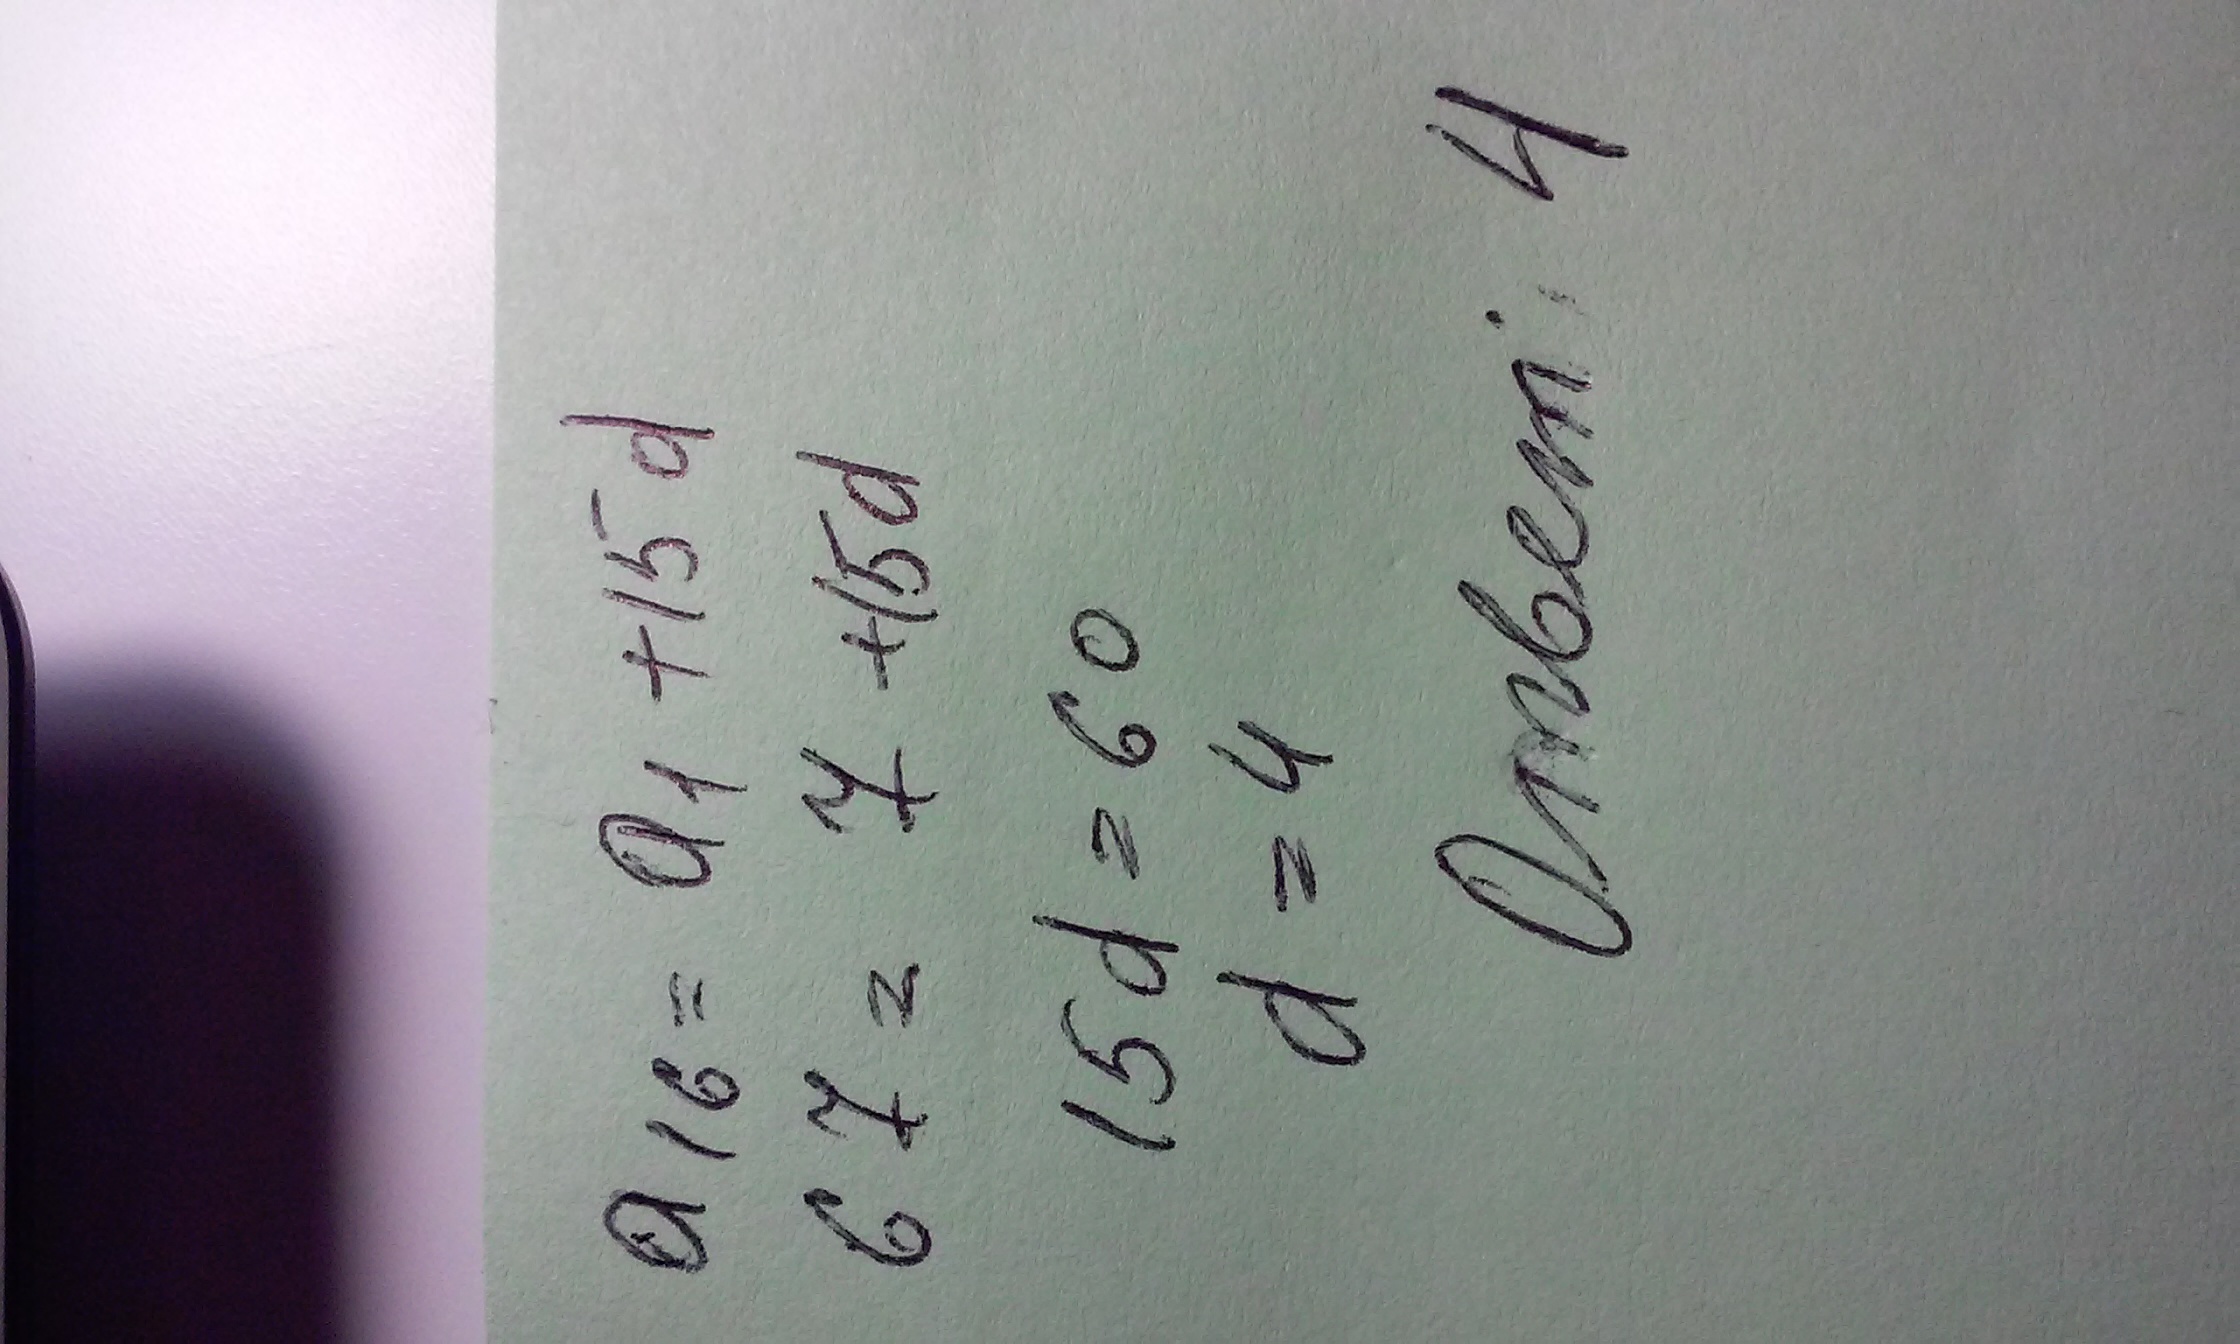 a16 = a1 + 15d
67 = 7 + 15d
15d = 60
d = 4
Ответ: 4